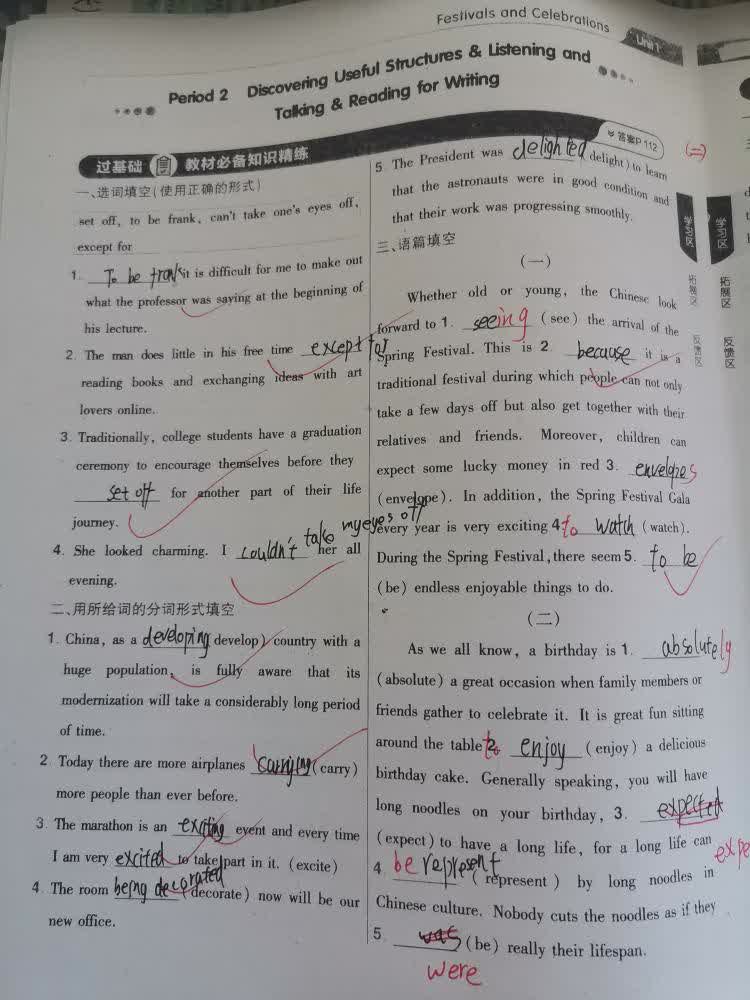 Festivals and Celebrations
Unit 1
Period 2 Discovering Useful Structures & Listening and
Talking & Reading for Writing
答案P 112
过基础 教材必备知识精练
一、选词填空(使用正确的形式)
set off, to be frank, can't take one's eyes off,
except for
1. To be frank it is difficult for me to make out
what the professor was saying at the beginning of
his lecture.
2. The man does little in his free time except for
reading books and exchanging ideas with art
lovers online.
3. Traditionally, college students have a graduation
ceremony to encourage themselves before they
set off for another part of their life
journey.
4. She looked charming. I couldn't take my eyes off her all
evening.
二、用所给词的分词形式填空
1. China, as a developing develop) country with a
huge population, is fully aware that its
modernization will take a considerably long period
of time.
2. Today there are more airplanes carrying (carry)
more people than ever before.
3. The marathon is an exciting event and every time
I am very excited to take part in it. (excite)
4. The room being decorated (decorate) now will be our
new office.
5. The President was delighted delight) to learn
that the astronauts were in good condition and
that their work was progressing smoothly.
(二)
三、语篇填空
(一)
Whether old or young, the Chinese look
forward to 1. seeing (see) the arrival of the
Spring Festival. This is 2. because it is a
traditional festival during which people can not only
take a few days off but also get together with their
relatives and friends. Moreover, children can
expect some lucky money in red 3. envelopes
(envelope). In addition, the Spring Festival Gala
every year is very exciting 4. to watch (watch).
During the Spring Festival, there seem 5. to be
(be) endless enjoyable things to do.
(二)
As we all know, a birthday is 1. absolutely
(absolute) a great occasion when family members or
friends gather to celebrate it. It is great fun sitting
around the table 2. to enjoy (enjoy) a delicious
birthday cake. Generally speaking, you will have
long noodles on your birthday, 3. expected
(expect) to have a long life, for a long life can
expe
4 be represent (represent) by long noodles in
Chinese culture. Nobody cuts the noodles as if they
5. was (be) really their lifespan.
were
学习区
拓展区
反馈区
学习区
拓展区
反馈区